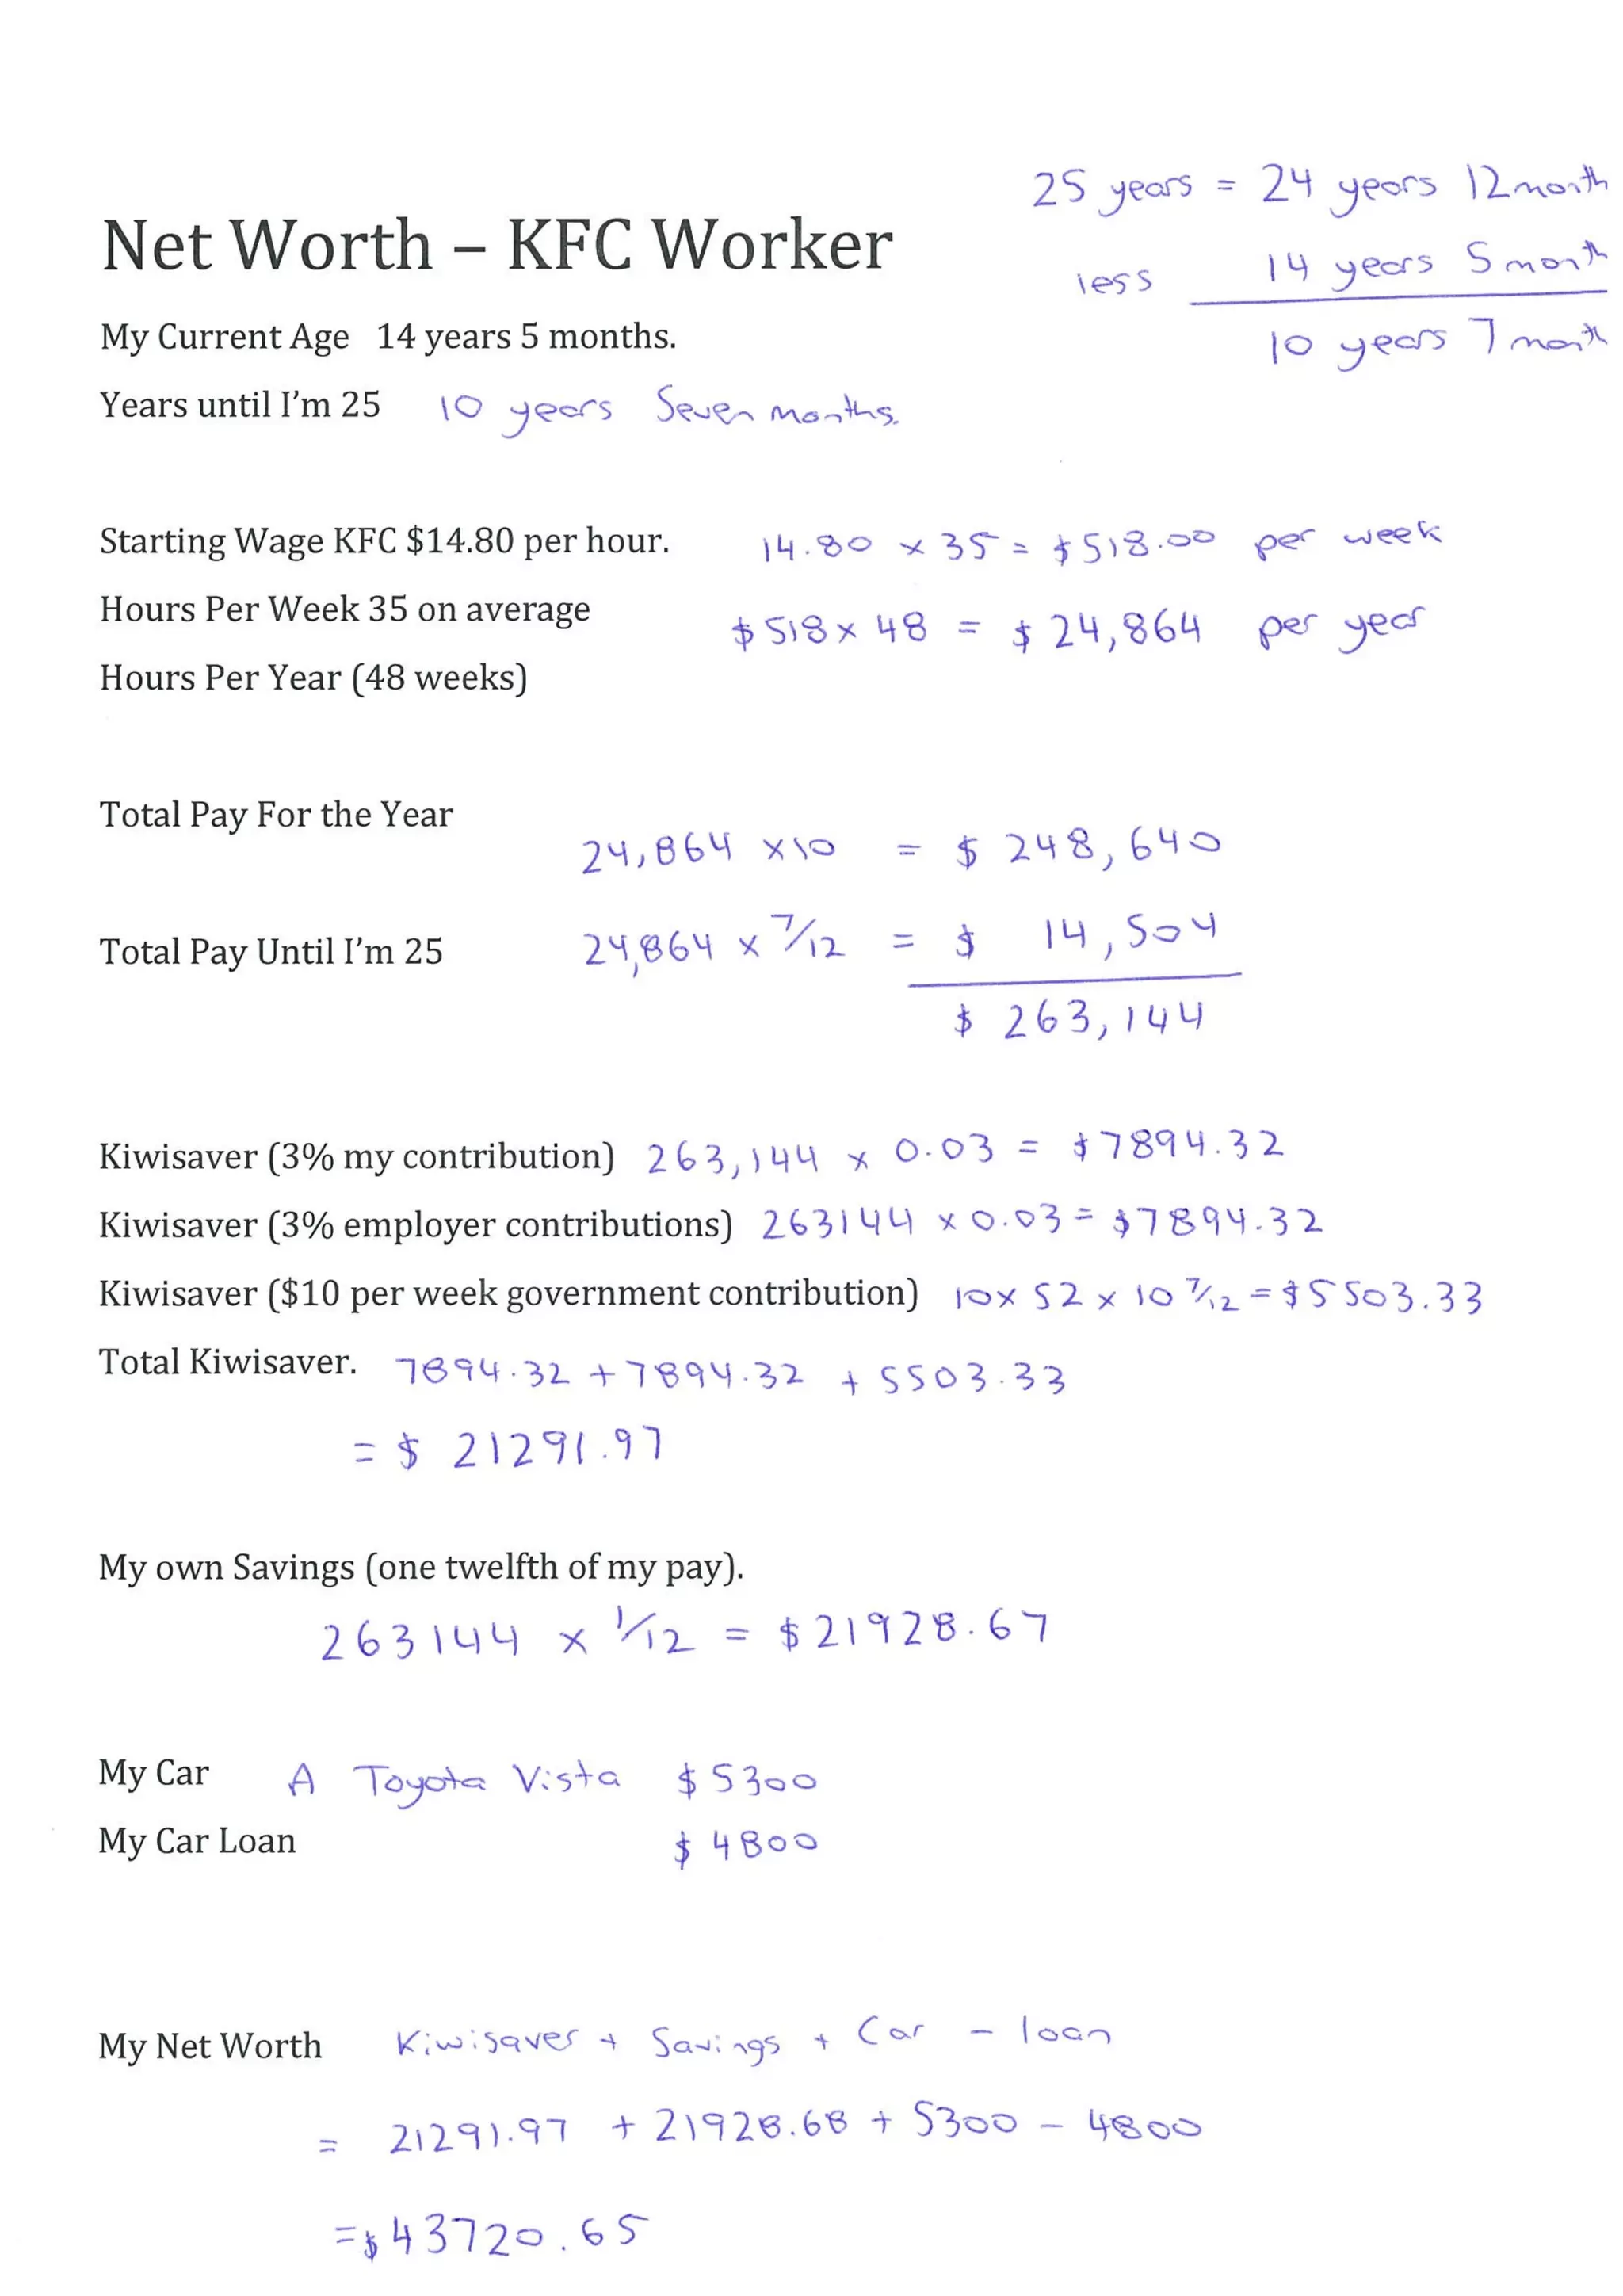 25 years = 24 years 12 month
less 14 years 5 month
10 years 7 month
Net Worth – KFC Worker
My Current Age 14 years 5 months.
Years until I'm 25 10 years Seven months.
Starting Wage KFC $14.80 per hour. 14.80 × 35 = $518.00 per week
Hours Per Week 35 on average $518 × 48 = $24,864 per year
Hours Per Year (48 weeks)
Total Pay For the Year 24,864 ×10 = $ 248,640
Total Pay Until I'm 25 24,864 × 7/12 = $ 14,504
$ 263,144
Kiwisaver (3% my contribution) 263,144 × 0.03 = $7894.32
Kiwisaver (3% employer contributions) 263144 × 0.03 = $7894.32
Kiwisaver ($10 per week government contribution) 10 × 52 × 10 7/12 = $5503.33
Total Kiwisaver. 7894.32 + 7894.32 + 5503.33
= $ 21291.97
My own Savings (one twelfth of my pay).
263144 × 1/12 = $21928.67
My Car A Toyota Vista $5300
My Car Loan $ 4800
My Net Worth Kiwisaver + Savings + Car – loan
= 21291.97 + 21928.68 + 5300 – 4800
=$43720.65